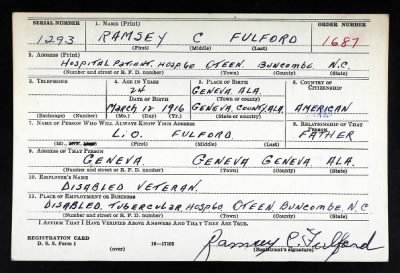 SERIAL NUMBER 1. NAME (Print) ORDER NUMBER
1293 RAMSEY C FULFORD 1687
(First) (Middle) (Last)
2. ADDRESS (Print)
HOSPITAL PATIENT. HOSP 60 OTEEN. BUNCOMBE N.C.
(Number and street or R. F. D. number) (Town) (County) (State)
3. TELEPHONE 4. AGE IN YEARS 5. PLACE OF BIRTH 6. COUNTRY OF CITIZENSHIP
24 GENEVA ALA.
DATE OF BIRTH
MARCH 12 1916 GENEVA COUNTY, ALA. AMERICAN
(Exchange) (Number) (Mo.) (Day) (Yr.) (State or country)
7. NAME OF PERSON WHO WILL ALWAYS KNOW YOUR ADDRESS 8. RELATIONSHIP OF THAT PERSON
L.O. FULFORD. FATHER
(First) (Middle) (Last)
9. ADDRESS OF THAT PERSON
GENEVA GENEVA GENEVA ALA.
(Number and street or R. F. D. number) (Town) (County) (State)
10. EMPLOYER'S NAME
DISABLED VETERAN.
11. PLACE OF EMPLOYMENT OR BUSINESS
DISABLED. TUBERCULAR HOSP 60 OTEEN. BUNCOMBE, N.C
(Number and street or R. F. D. number) (Town) (County) (State)
I AFFIRM THAT I HAVE VERIFIED ABOVE ANSWERS AND THAT THEY ARE TRUE.
REGISTRATION CARD
D. S. S. Form 1 (over) 16—17105 (Registrant's signature)
Ramsey C. Fulford